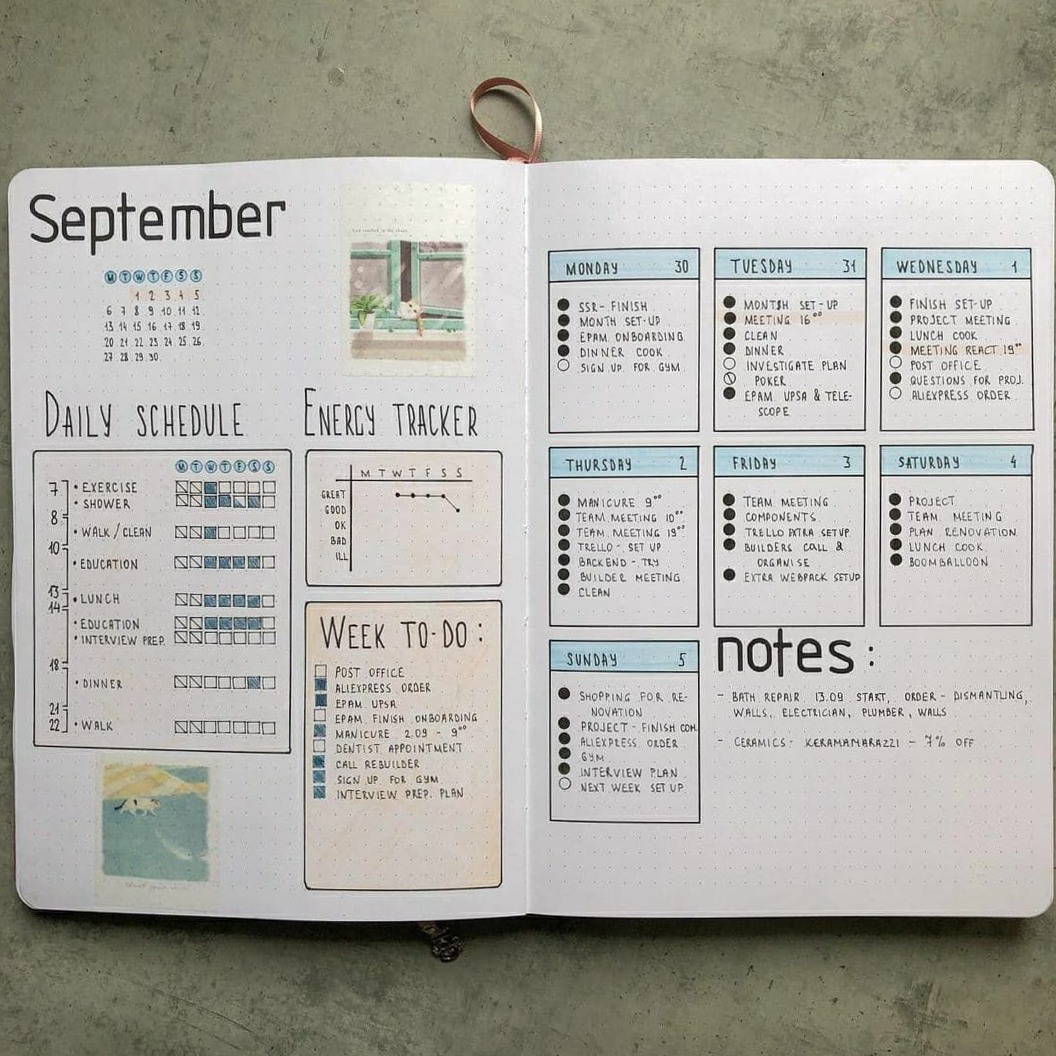 September
M T W T F S S
1 2 3 4 5
6 7 8 9 10 11 12
13 14 15 16 17 18 19
20 21 22 23 24 25 26
27 28 29 30
DAILY SCHEDULE
M T W T F S S
7 • EXERCISE
• SHOWER
8
• WALK / CLEAN
10
• EDUCATION
13
• LUNCH
14
• EDUCATION
• INTERVIEW PREP.
18
• DINNER
21
22 • WALK
ENERGY TRACKER
M T W T F S S
GREAT
GOOD
OK
BAD
ILL
WEEK TO-DO:
POST OFFICE
ALIEXPRESS ORDER
EPAM UPSA
EPAM FINISH ONBOARDING
MANICURE 2.09 - 9⁰⁰
DENTIST APPOINTMENT
CALL REBUILDER
SIGN UP FOR GYM
INTERVIEW PREP. PLAN
MONDAY 30
SSR - FINISH
MONTH SET-UP
EPAM ONBOARDING
DINNER COOK
SIGN UP FOR GYM
TUESDAY 31
MONTSH SET-UP
MEETING 16⁰⁰
CLEAN
DINNER
INVESTIGATE PLAN
POKER
EPAM UPSA & TELE-
SCOPE
WEDNESDAY 1
FINISH SET-UP
PROJECT MEETING
LUNCH COOK
MEETING REACT 19⁰⁰
POST OFFICE
QUESTIONS FOR PROJ.
ALIEXPRESS ORDER
THURSDAY 2
MANICURE 9⁰⁰
TEAM MEETING 10⁰⁰
TEAM MEETING 19⁰⁰
TRELLO - SET UP
BACKEND - TRY
BUILDER MEETING
CLEAN
FRIDAY 3
TEAM MEETING
COMPONENTS
TRELLO EXTRA SETUP
BUILDERS CALL &
ORGANISE
EXTRA WEBPACK SETUP
SATURDAY 4
PROJECT
TEAM MEETING
PLAN RENOVATION
LUNCH COOK
BOOMBALLOON
SUNDAY 5
SHOPPING FOR RE-
NOVATION
PROJECT - FINISH COM.
ALIEXPRESS ORDER
GYM
INTERVIEW PLAN
NEXT WEEK SET UP
notes:
- BATH REPAIR 13.09 START, ORDER - DISMANTLING,
WALLS, ELECTRICIAN, PLUMBER, WALLS
- CERAMICS - KERAMAMARAZZI - 7% OFF